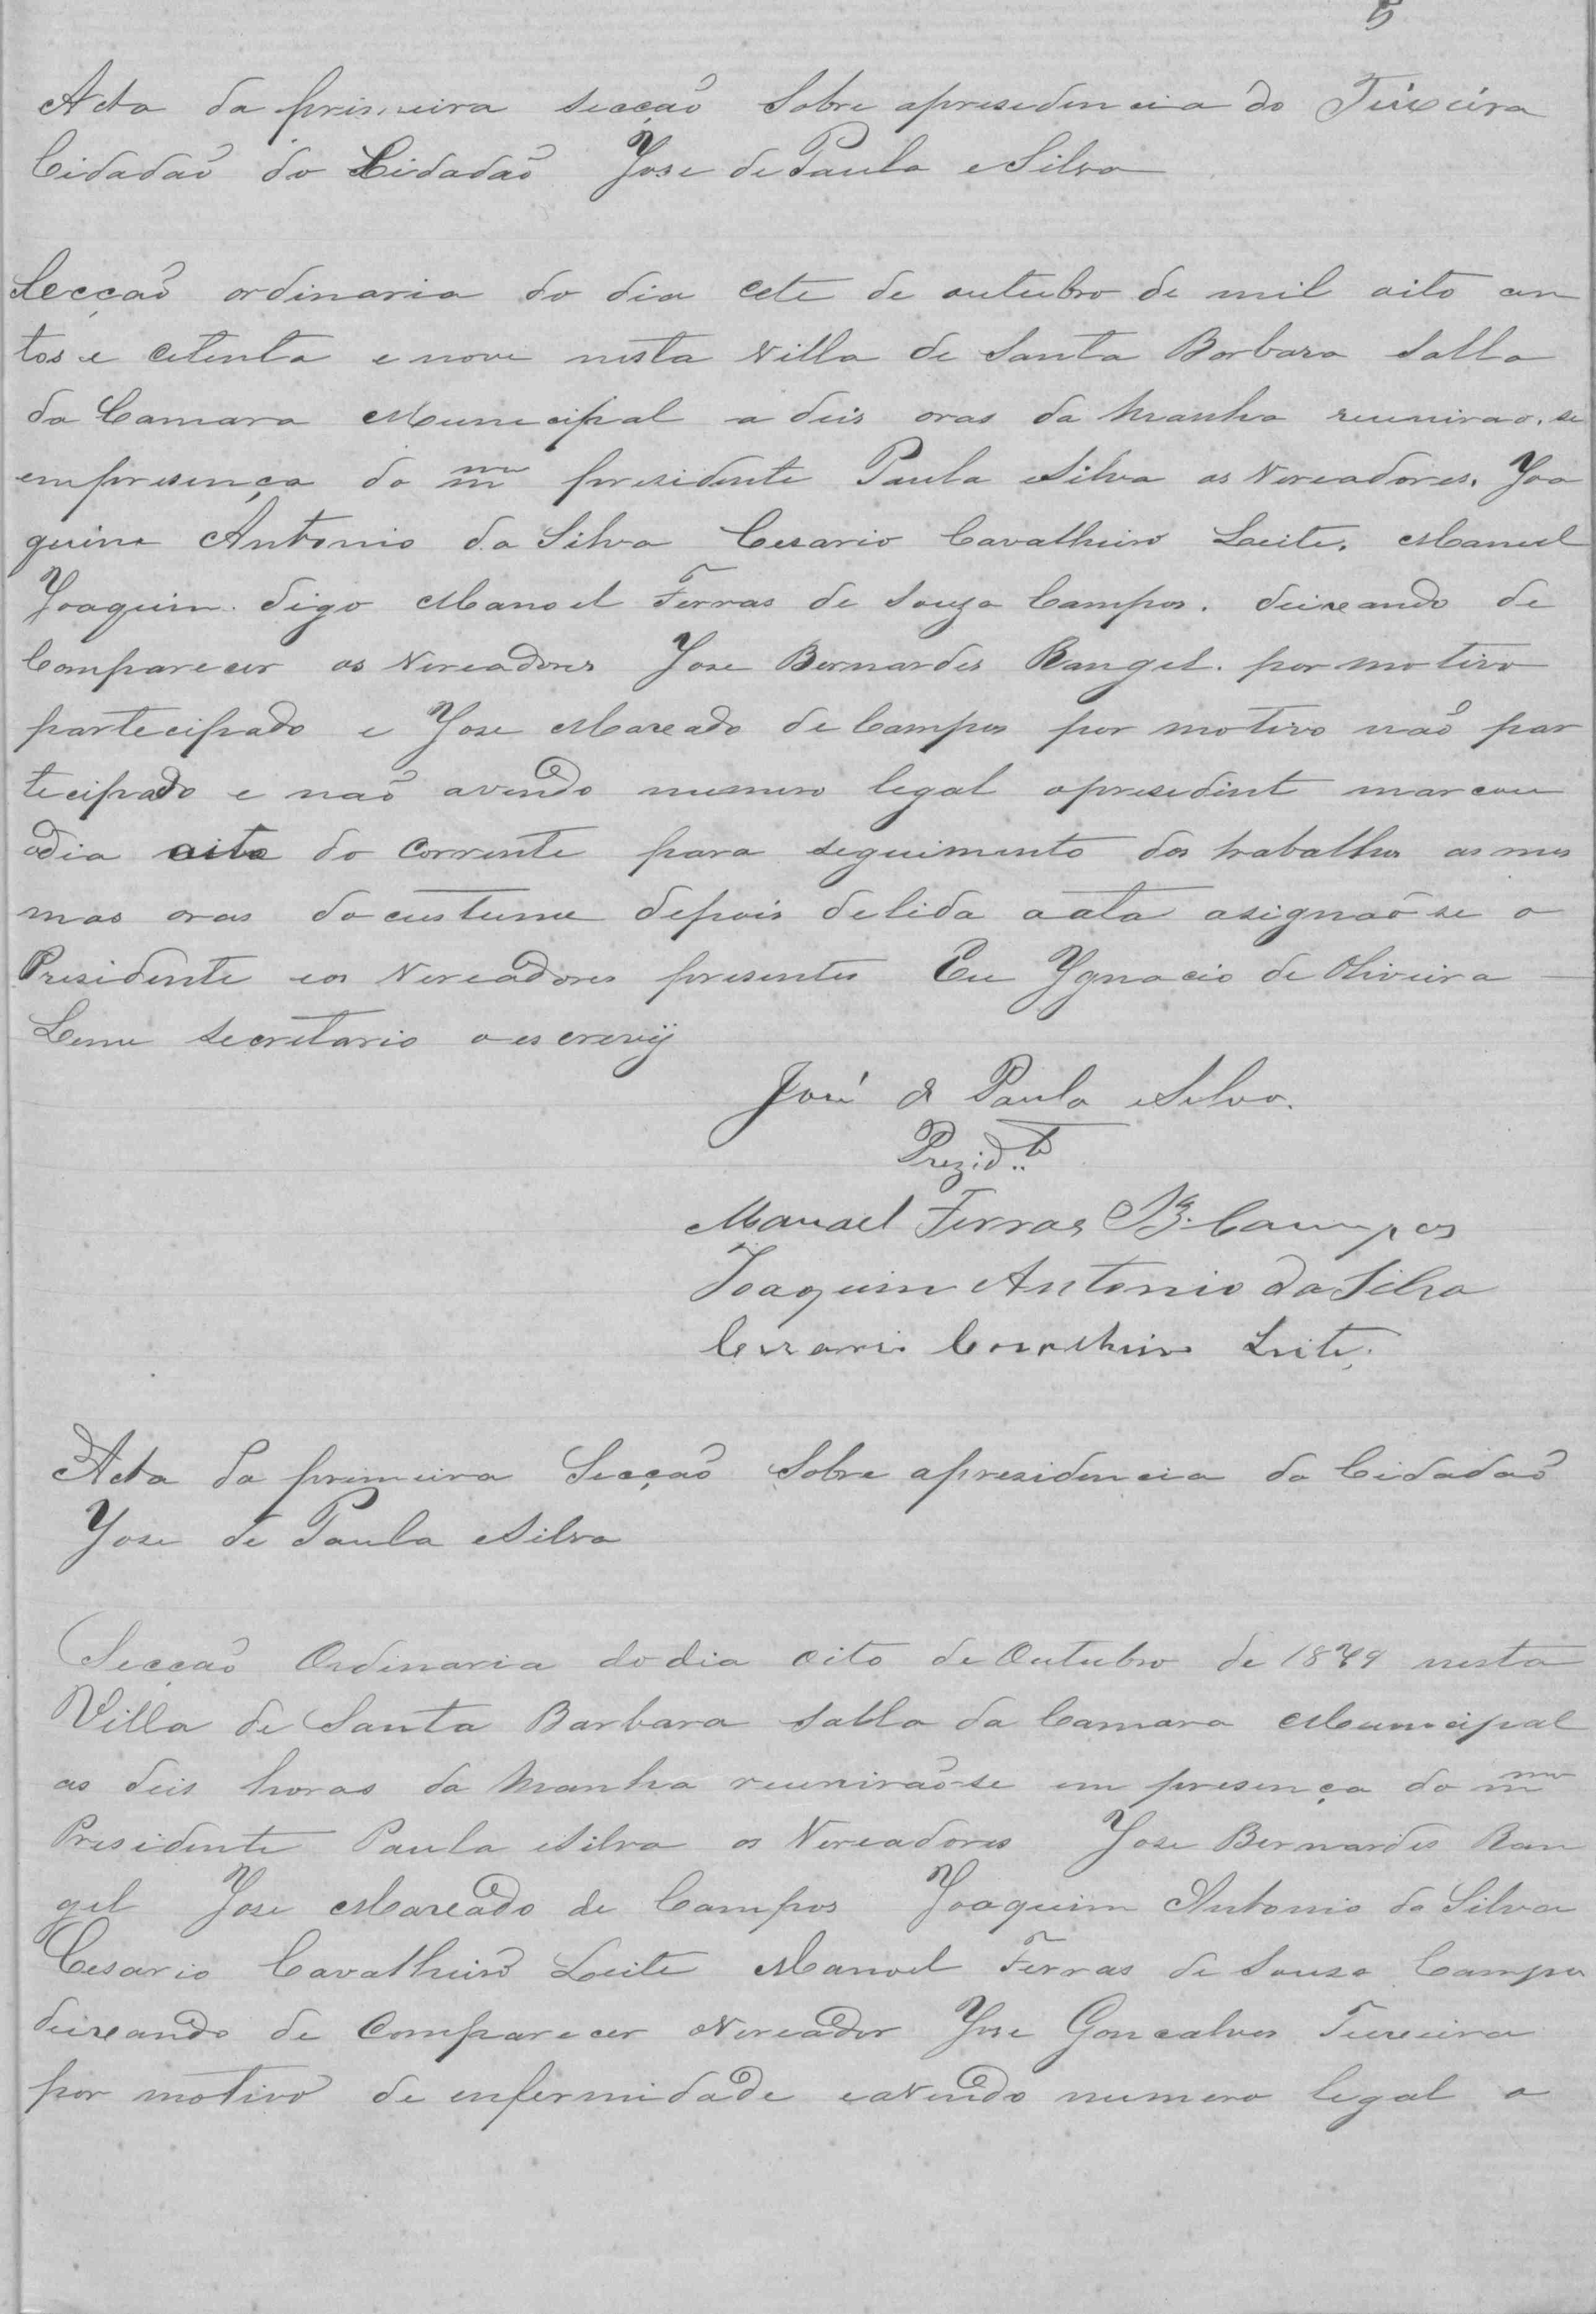 5
Acta da primeira secção Sobre apresedencia do Teixeira
Cidadão do Cidadão Jose de Paula e Silva
Secção ordinaria do dia cete de outubro de mil oito cen
tos e cetenta e nove nesta Villa de Santa Barbara Salla
da Camara Municipal a deis oras da manha reunirao-se
empresença do mmo presidente Paula e Silva os Vereadores. Joa
quim Antonio da Silva Cesario Cavalheiro Leite. Manuel
Joaquim. digo Manoel Ferras de Souza Campos. deixando de
Comparecer os Vereadores Jose Bernardes Rangel. por motivo
partecipado e Jose Maxado de Campos por motivo não par
tecipado e não avendo numero legal opresedint marcou
odia oito do corrente para seguimento dos trabalhos as mes
mas oras do custume depois delida a ata asignaõ-se o
Presidente eos Vereadores presentes Eu Ygnacio de Oliveira
Leme secretario o escrevij
José de Paula e Silva.
Prezid.te
Manael Ferras Campos
Joaquim Antonio da Silva
Cezario Cavalheiro Leite.
Acta da primeira Secção Sobre apresidencia do Cidadão
Jose de Paula e Silva
Secção Ordinaria do dia oito de Outubro de 1879 nesta
Villa de Santa Barbara Salla da Camara Municipal
as deis horas da manha reunirão-se em presença do mmo
Presidente Paula e Silva os Vereadores Jose Bernardes Ran
gel Jose Maxado de Campos Joaquim Antonio da Silva
Cesario Cavalheiro Leite Manoel Ferras de Souza Campos
deixando de Comparecer oVereador Jose Goncalves Teixeira
por motivo de enfermidade eavendo numero legal o